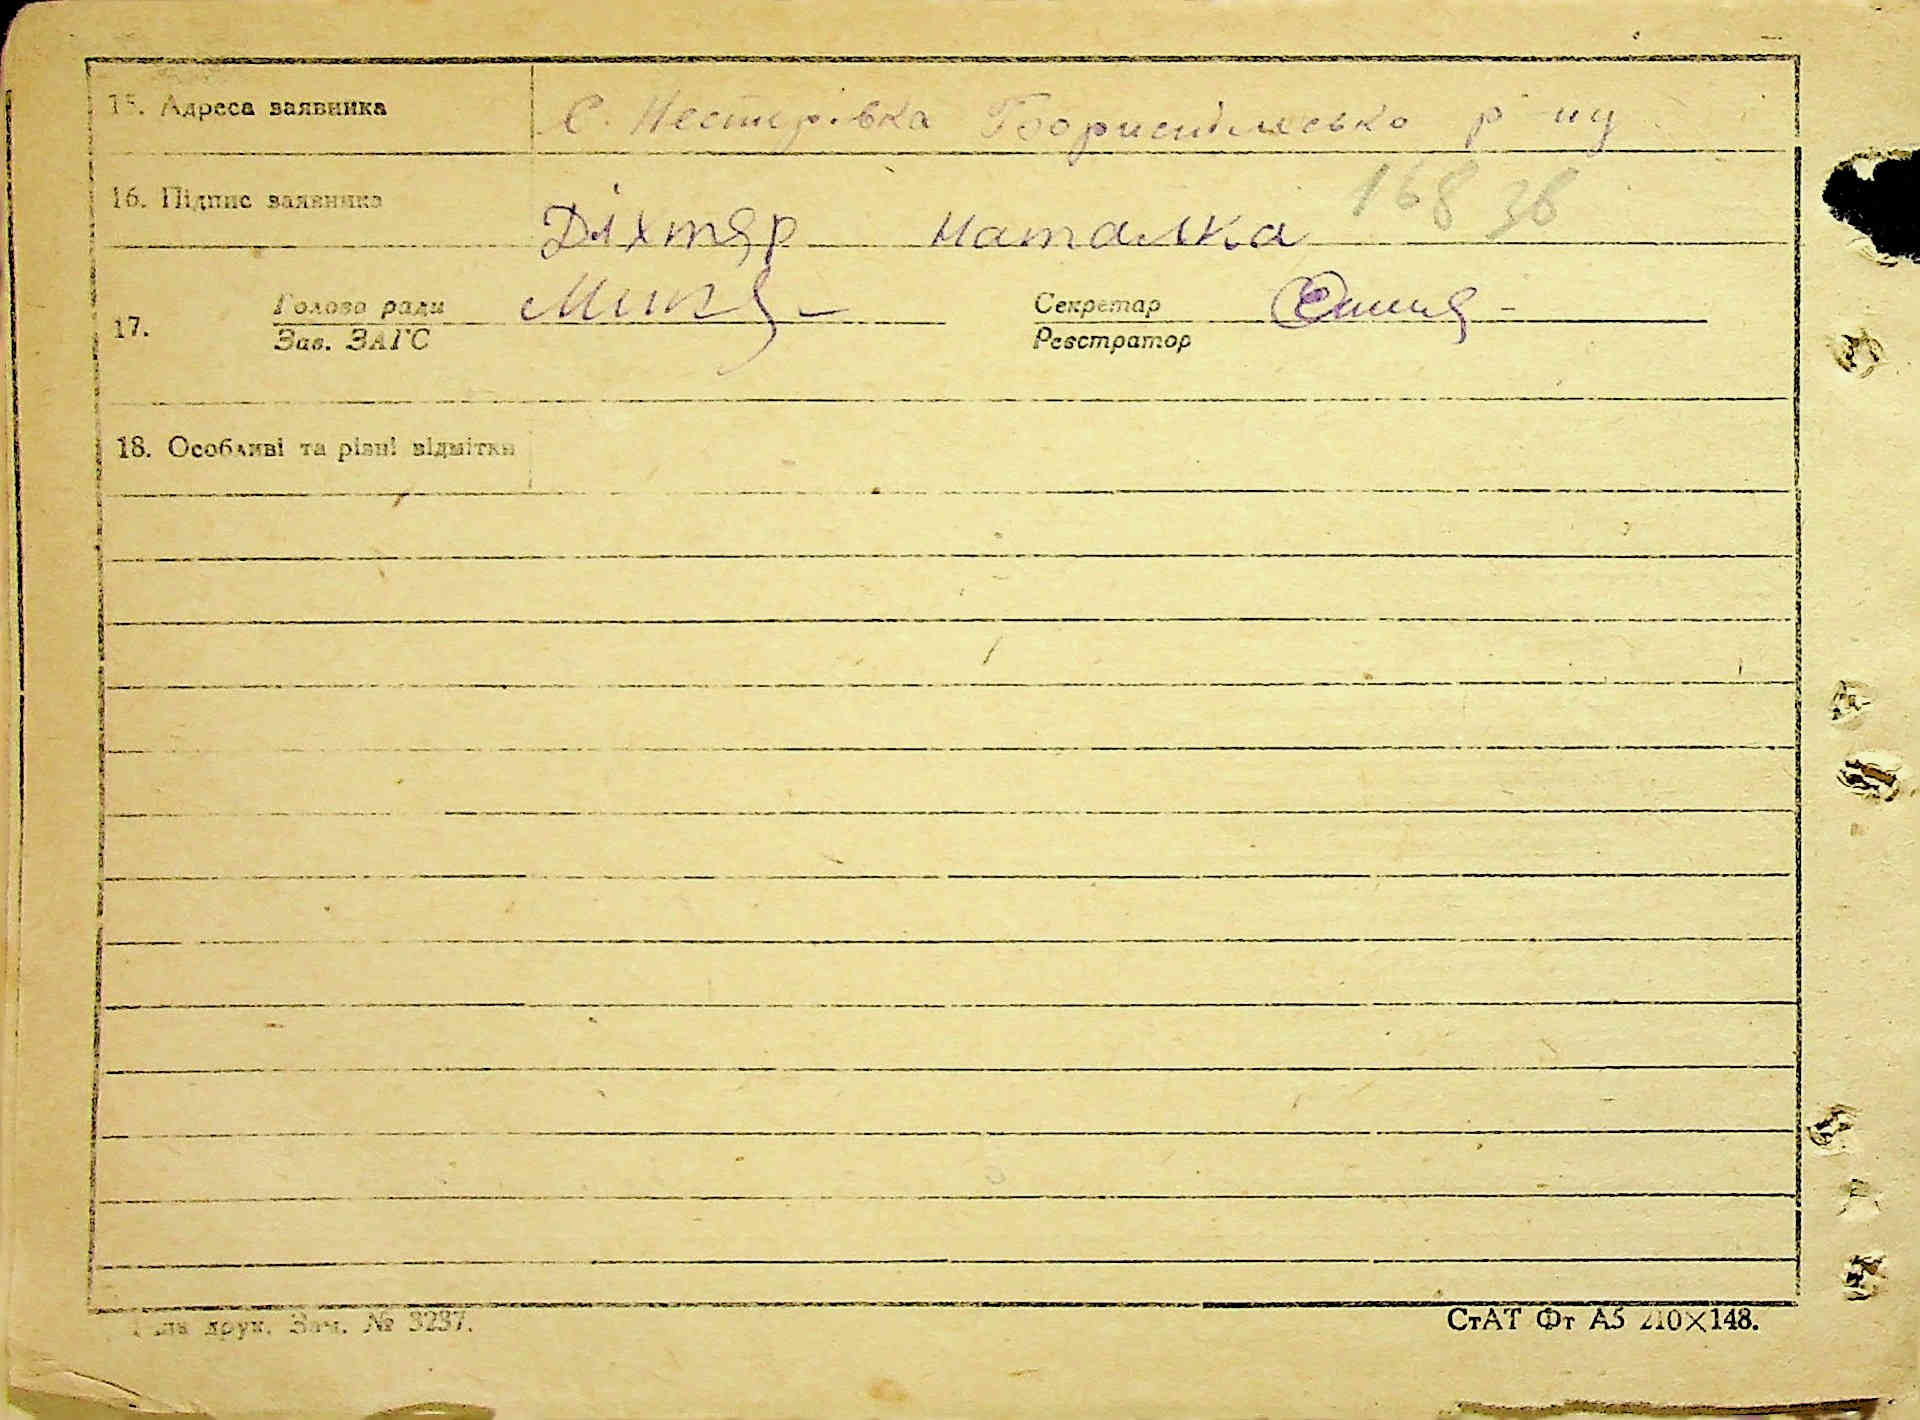 15. Адреса заявника С. Нестерівка Бориспільсько р-ну
16. Підпис заявника Діхтяр Наталка 168 зв
17. Голова ради Секретар
Зав. ЗАГС Реєстратор
18. Особливі та різні відмітки
друк. Зам. № 3237. СтАТ Фт А5 210×148.